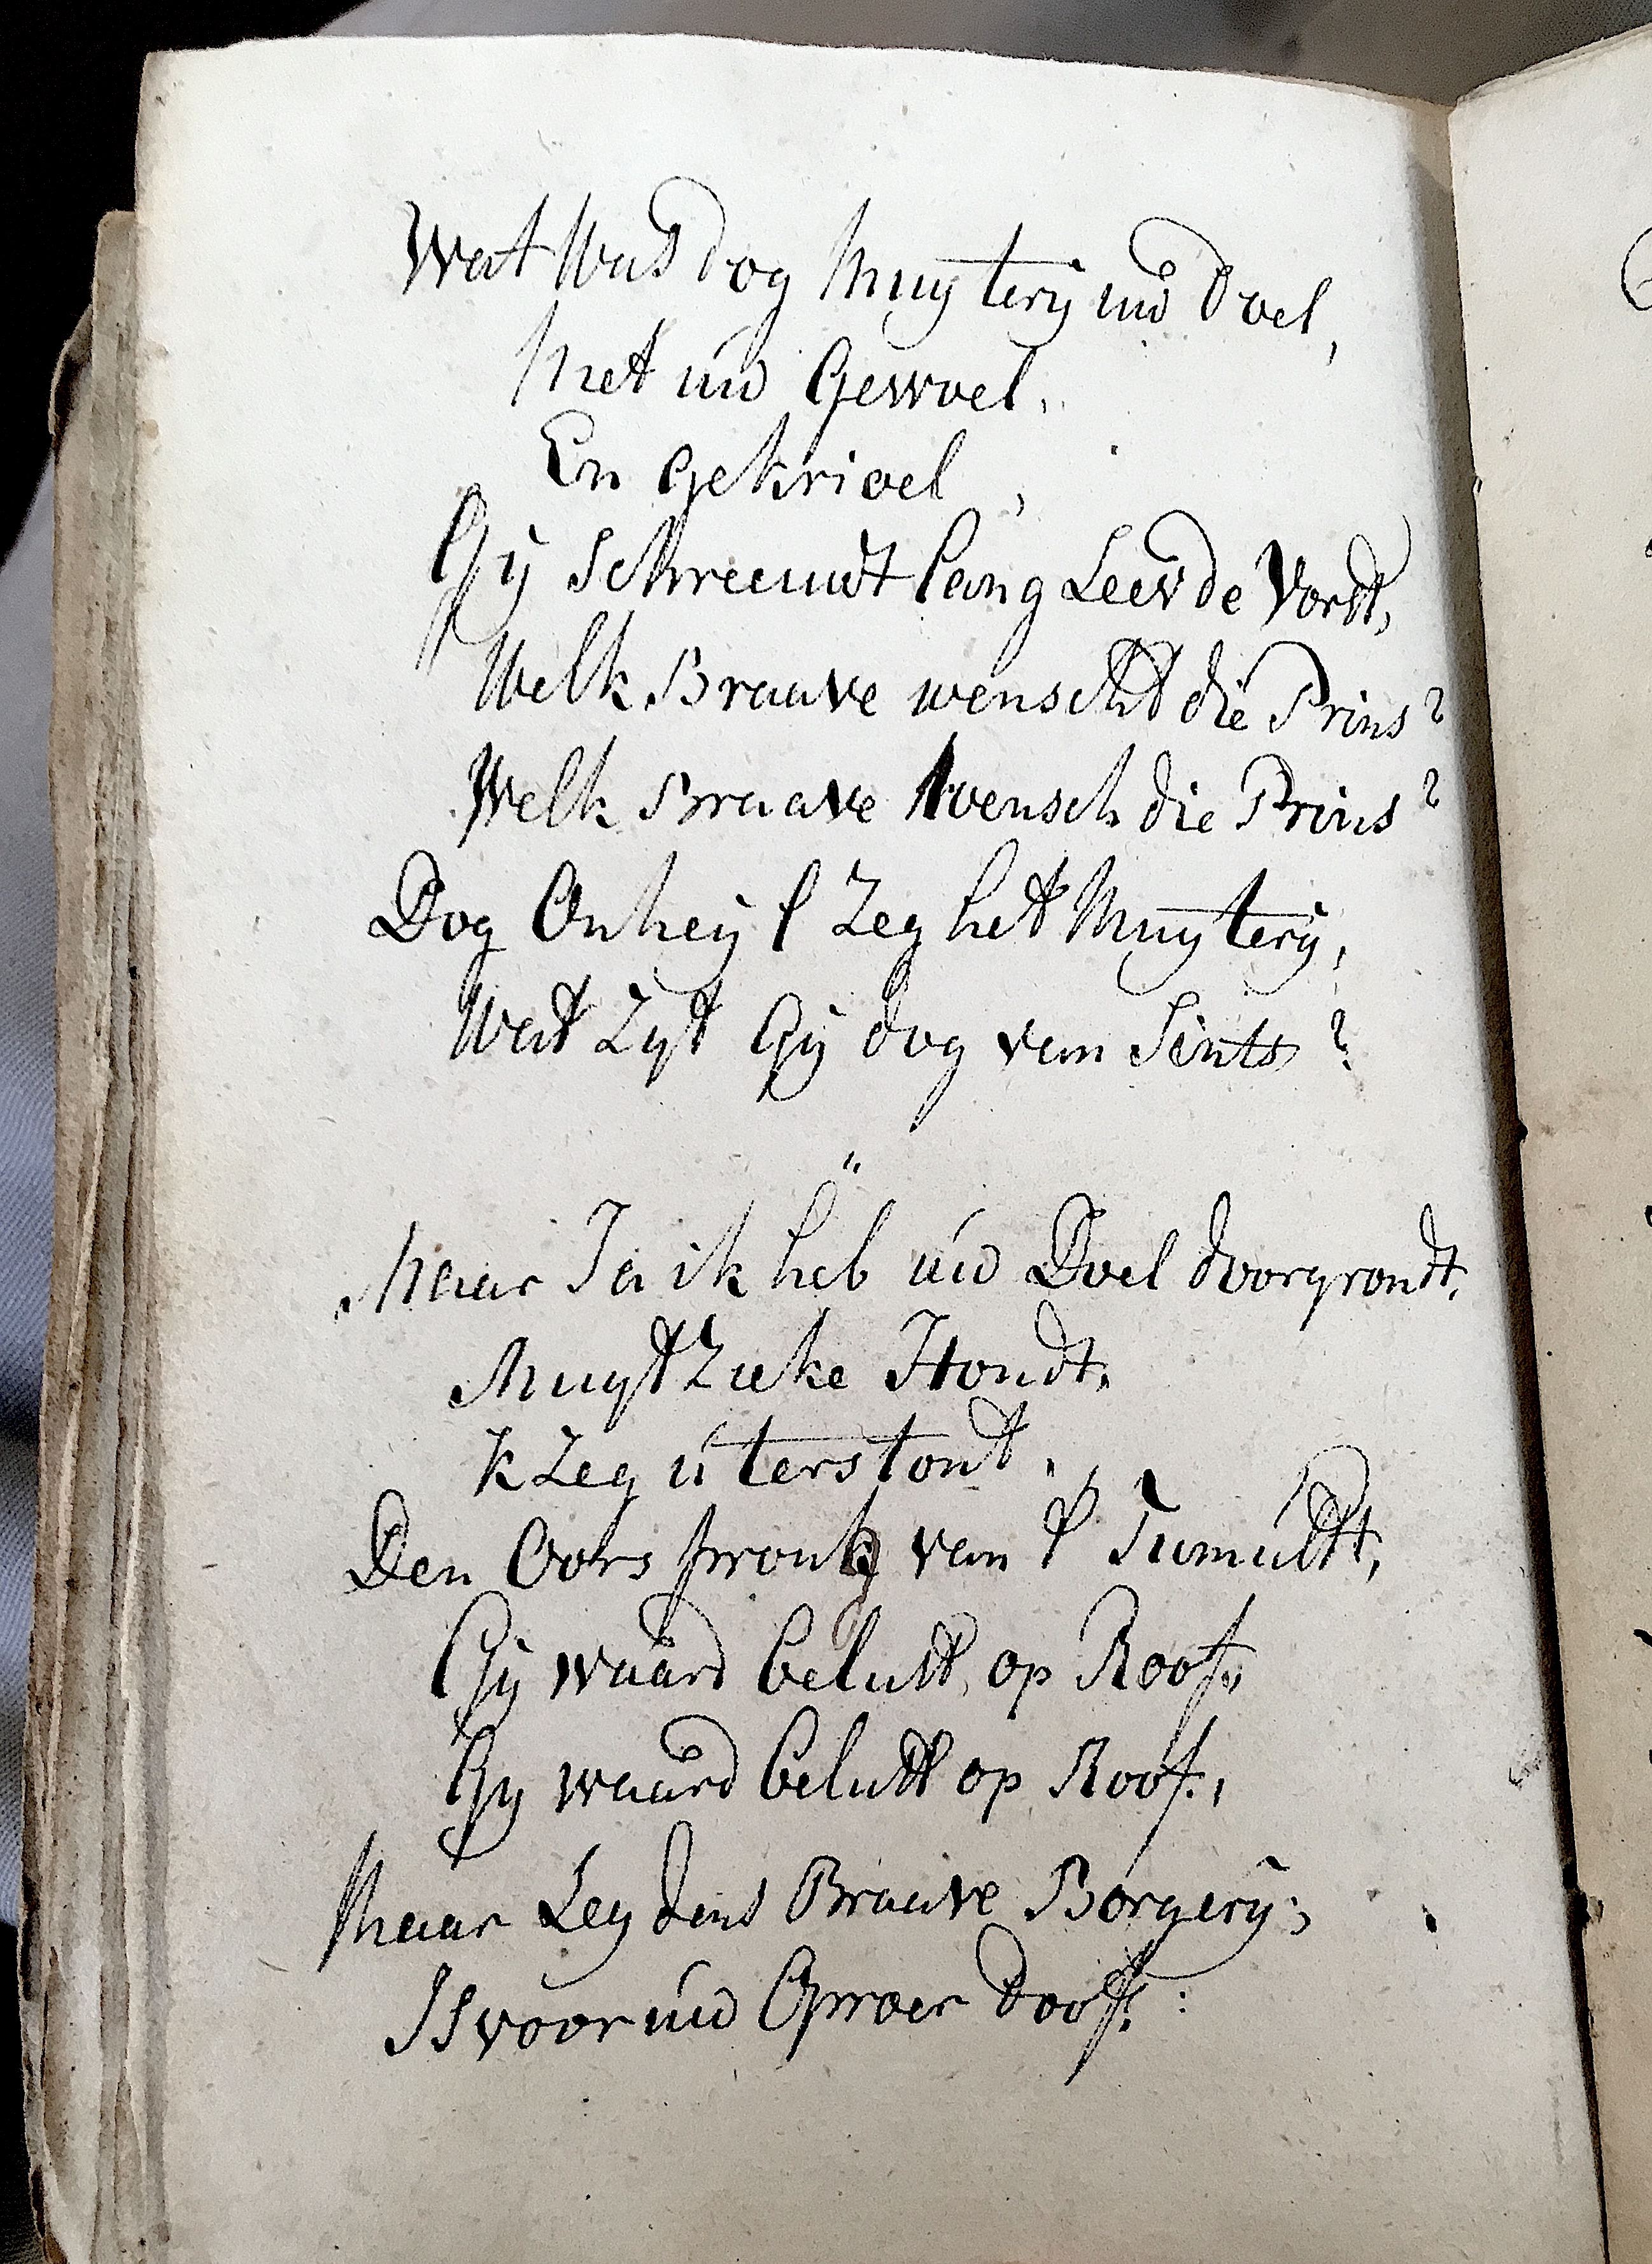 Wat Was dog Muyterij uw Doel,
Met uw Gewoel,
En Gekrioel,
Gij Schreeuwt lang Leev de Vorst,
Welk Braave wenscht die Prins?
Welk Braave Wensch die Prins?
Dog Onheyl Zeg het Muyterij,
Wat Zyt Gij dog van Sints?
"
Maar Ja ik heb uw Doel doorgrondt,
Muytzieke Hondt,
K Zeg u terstond,
Den Oorspronk van 't Tumult,
Gij waard belust op Roof,
Gy waard belust op Roof,
Maar Leydens Braave Borgerij,
Is voor uw Oproer Doof: